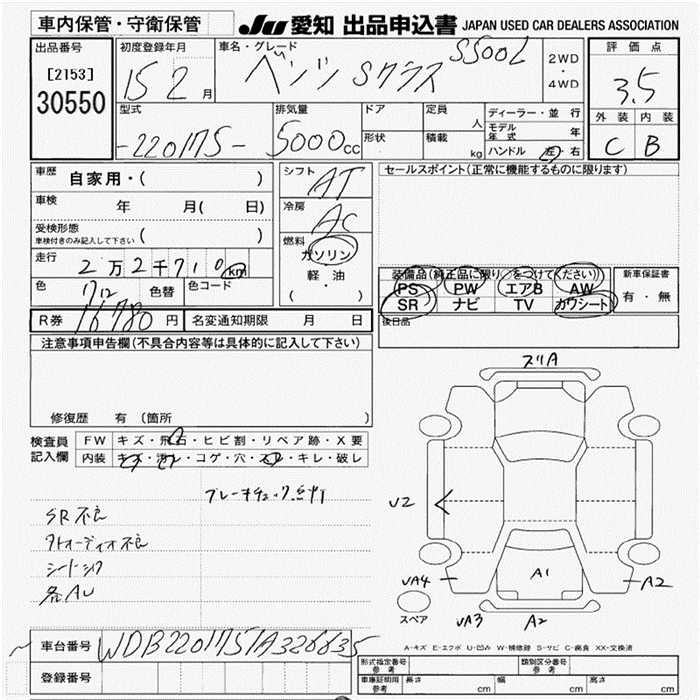 車内保管・守衛保管
JU 愛知 出品申込書 JAPAN USED CAR DEALERS ASSOCIATION
出品番号
[2153]
30550
初度登録年月
15 2 月
車名・グレード
ベンツ Sクラス S500L
2WD
・
4WD
評価点
3.5
外装 内装
C B
型式
-220175-
排気量
5000cc
ドア
形状
定員
人
積載
kg
ディーラー・並行
モデル年式 年
ハンドル 左・右
車歴
自家用・( )
車検
年 月( 日)
受検形態
車検付きのみ記入して下さい ( )
走行
2万2千710km
色
712
色替
色コード
R券 16780円
名変通知期限 月 日
シフト
AT
冷房
AC
燃料
ガソリン
軽・油
( ・ )
セールスポイント(正常に機能するものに限ります)
装備品(純正品に限り○をつけてください)
PS PW エアB AW
SR ナビ TV カワシート
新車保証書
有・無
後日品
注意事項申告欄(不具合内容等は具体的に記入して下さい)
修復歴 有(箇所
検査員
記入欄
FW キズ・飛石・ヒビ割・リペア跡・X要
内装 キズ・汚レ・コゲ・穴・スレ・キレ・破レ
ブレーキチェック点灯
SR不良
オーディオ不良
各AU
スリA
U2
A1
UA4
UA3
A2
A2
スペア
A-キズ E-エクボ U-凹み W-補修跡 S-サビ C-腐食 XX-交換済
車台番号 WDB2201751A326635
登録番号
型式指定番号
参考
類別区分番号
参考
車庫証明用
参考
長さ cm 幅 cm 高さ cm